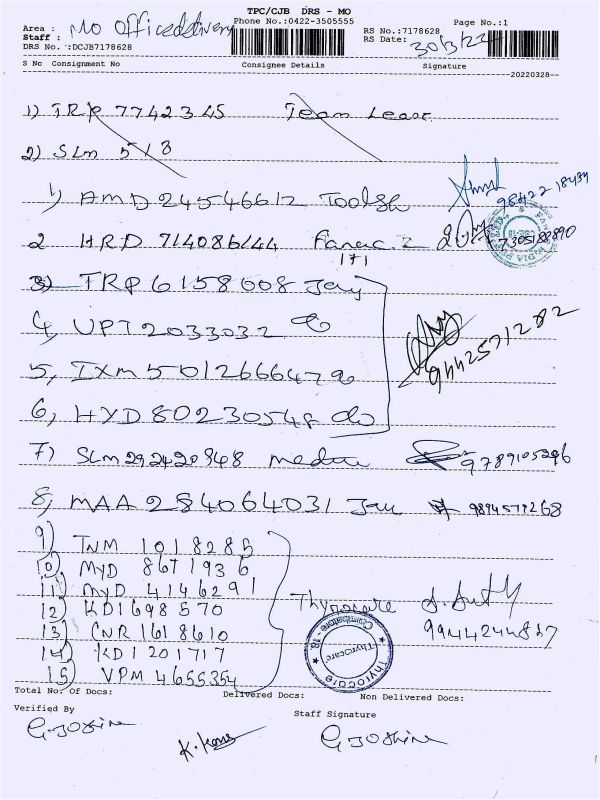 TPC/CJB DRS - MO
Area : Mo Office delivery
Phone No.:0422-3505555
Page No.:1
Staff :
RS No.:7178628
DRS No. :DCJB7178628
RS Date: 30/3/22
S No Consignment No Consignee Details Signature
20220328
1) TRP 7742345 Team Lease
2) SLM 5/8
1) AMD 24546612
98422 18434
2 HRD 714086144
7305183890
171
3) TRP 6158608 Jay
4, UPT 2033032 do
9442571282
5, IXM 501266647 do
6, HYD 80230548 do
7) SLM 292420848
9789105296
8, MAA 284064031
9) TNM 1018285
10) MYD 8671936
11) MYD 4146291
12) KDI 698570
Thyrocare
13) CNR 1618610
9944244837
14) KDI 201717
Thyrocare Coimbatore - 18
15) VPM 4655354
Total No. Of Docs: Delivered Docs: Non Delivered Docs:
Verified By
Staff Signature